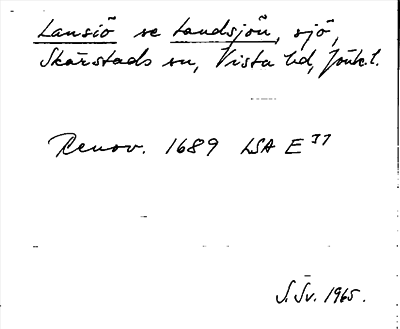 Lansiö se Landsjön, sjö,
Skärstads sn, Vista hd, Jönk.l.
Renov. 1689 LSA E 37
S. Sv. 1965.